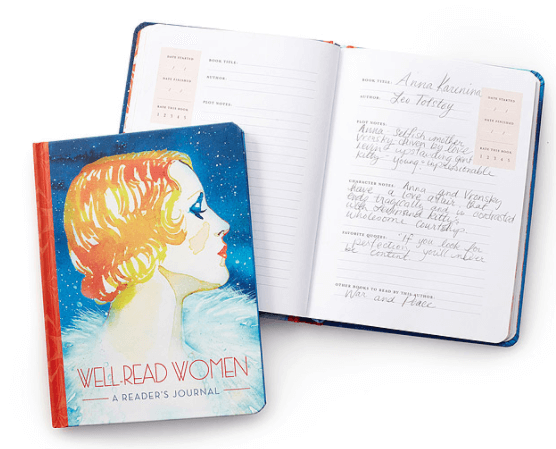 DATE STARTED
/ /
DATE FINISHED
/ /
RATE THIS BOOK
1 2 3 4 5
BOOK TITLE:
AUTHOR:
PLOT NOTES:
BOOK TITLE: Anna Karinina
AUTHOR: Leo Tolstoy
DATE STARTED
/ /
DATE FINISHED
/ /
RATE THIS BOOK
1 2 3 4 5
PLOT NOTES:
Anna, selfish mother
Vronsky driven by love
Levin upstanding gent
Kitty - young - impressionable
CHARACTER NOTES: Anna and Vronsky
have a love affair that
ends tragically and is contrasted
with and Kitty's
wholesome courtship.
FAVORITE QUOTES: "If you look for
perfection, you'll never
be content
OTHER BOOKS TO READ BY THIS AUTHOR:
War and Peace
WELL-READ WOMEN
A READER'S JOURNAL